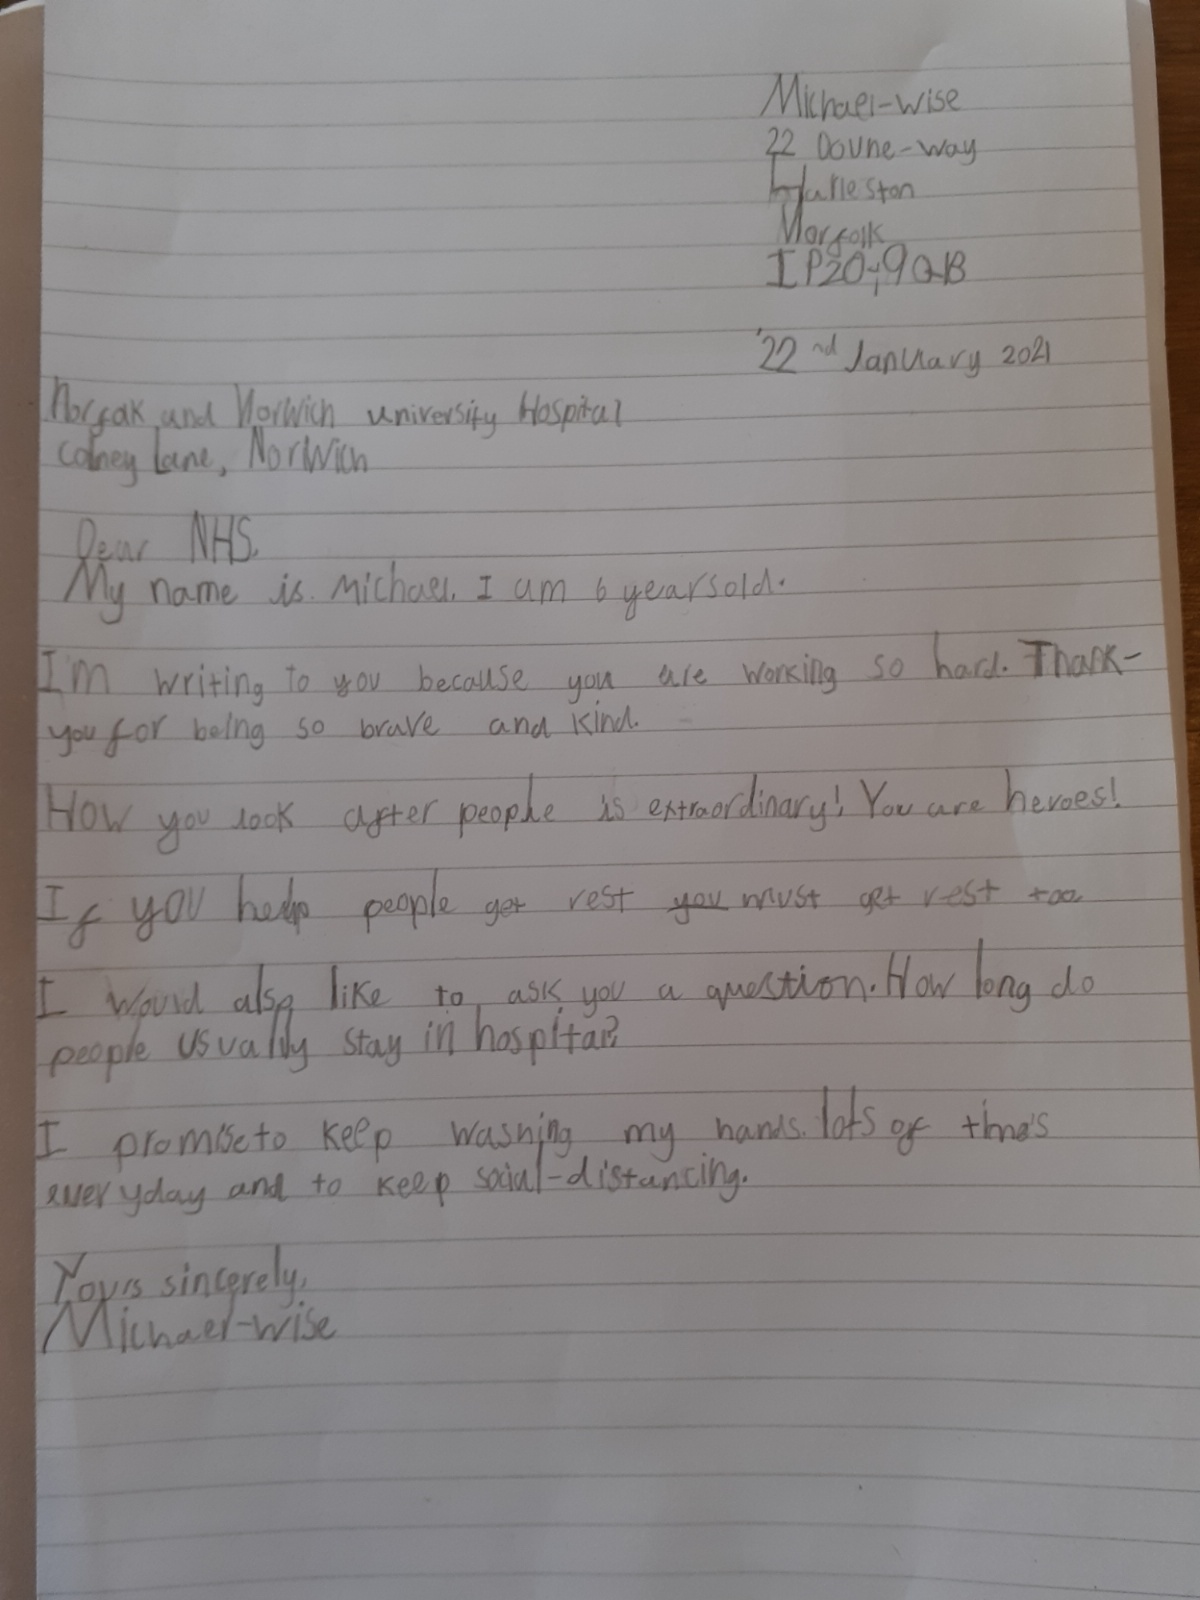 Michael-wise
22 Doune-way
Harleston
Norfolk
IP20-9QB
22nd January 2021
Norfak and Norwich university Hospital
Colney Lane, Norwich
Dear NHS,
My name is Michael. I am 6 yearsold.
I'm writing to you because you are working so hard. Thank-
you for being so brave and kind.
How you look after peophe is extraordinary! You are heroes!
If you help people get rest you must get rest too.
I would also like to ask you a question. How long do
people usually stay in hospital?
I promise to keep washing my hands. lots of times
everyday and to keep social-distancing.
Yours sincerely,
Michael-wise